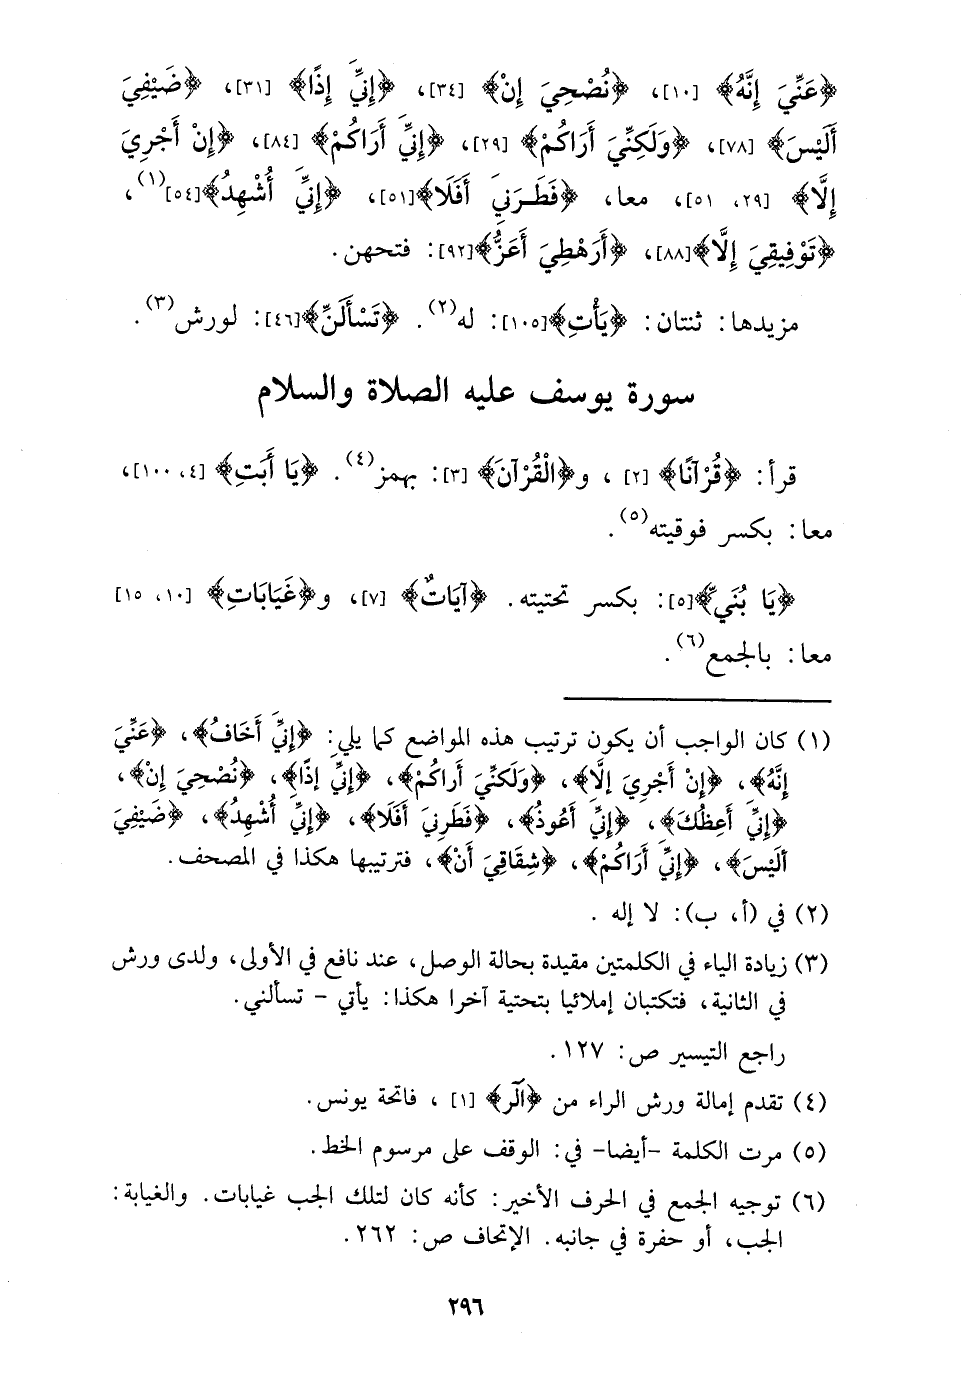 ﴿عَنِّيَ إِنَّهُ﴾ [١٠]، ﴿نُصْحِيَ إِنْ﴾ [٣٤]، ﴿إِنِّيَ إِذًا﴾ [٣١]، ﴿ضَيْفِيَ
أَلَيْسَ﴾ [٧٨]، ﴿وَلَكِنِّيَ أَرَاكُمْ﴾ [٢٩]، ﴿إِنِّيَ أَرَاكُمْ﴾ [٨٤]، ﴿إِنْ أَجْرِيَ
إِلَّا﴾ [٢٩، ٥١]، معا، ﴿فَطَرَنِيَ أَفَلَا﴾[٥١]، ﴿إِنِّيَ أُشْهِدُ﴾[٥٤](١)،
﴿تَوْفِيقِيَ إِلَّا﴾[٨٨]، ﴿أَرَهْطِيَ أَعَزُّ﴾[٩٢]: فتحهن.
مزيدها: ثنتان: ﴿يَأْتِ﴾[١٠٥]: له(٢). ﴿تَسْأَلَنِّ﴾[٤٦]: لورش(٣).
سورة يوسف عليه الصلاة والسلام
قرأ: ﴿قُرْآنًا﴾ [٢] ، و﴿الْقُرْآنَ﴾ [٣]: بهمز(٤). ﴿يَا أَبَتِ﴾ [٤، ١٠٠]،
معا: بكسر فوقيته(٥).
﴿يَا بُنَيِّ﴾[٥]: بكسر تحتيته. ﴿آيَاتٌ﴾ [٧]، و﴿غَيَابَاتِ﴾ [١٠، ١٥]
معا: بالجمع(٦).
(١) كان الواجب أن يكون ترتيب هذه المواضع كما يلي: ﴿إِنِّيَ أَخَافُ﴾، ﴿عَنِّيَ
إِنَّهُ﴾، ﴿إِنْ أَجْرِيَ إِلَّا﴾، ﴿وَلَكِنِّيَ أَراكُمْ﴾، ﴿إِنِّيَ إذًا﴾، ﴿نُصْحِيَ إِنْ﴾،
﴿إِنِّيَ أَعِظُكَ﴾، ﴿إِنِّيَ أَعُوذُ﴾، ﴿فَطَرَنِيَ أَفَلَا﴾، ﴿إِنِّيَ أُشْهِدُ﴾، ﴿ضَيْفِيَ
أَلَيْسَ﴾، ﴿إِنِّيَ أَرَاكُمْ﴾، ﴿شِقَاقِيَ أَنْ﴾، فترتيبها هكذا في المصحف.
(٢) في (أ، ب): لا إله .
(٣) زيادة الياء في الكلمتين مقيدة بحالة الوصل، عند نافع في الأولى، ولدى ورش
في الثانية، فتكتبان إملائيا بتحتية آخرا هكذا: يأتي - تسألني.
راجع التيسير ص: ١٢٧.
(٤) تقدم إمالة ورش الراء من ﴿الٓر﴾ [١] ، فاتحة يونس.
(٥) مرت الكلمة -أيضا- في: الوقف على مرسوم الخط.
(٦) توجيه الجمع في الحرف الأخير: كأنه كان لتلك الجب غيابات. والغيابة:
الجب، أو حفرة في جانبه. الإتحاف ص: ٢٦٢.
٢٩٦